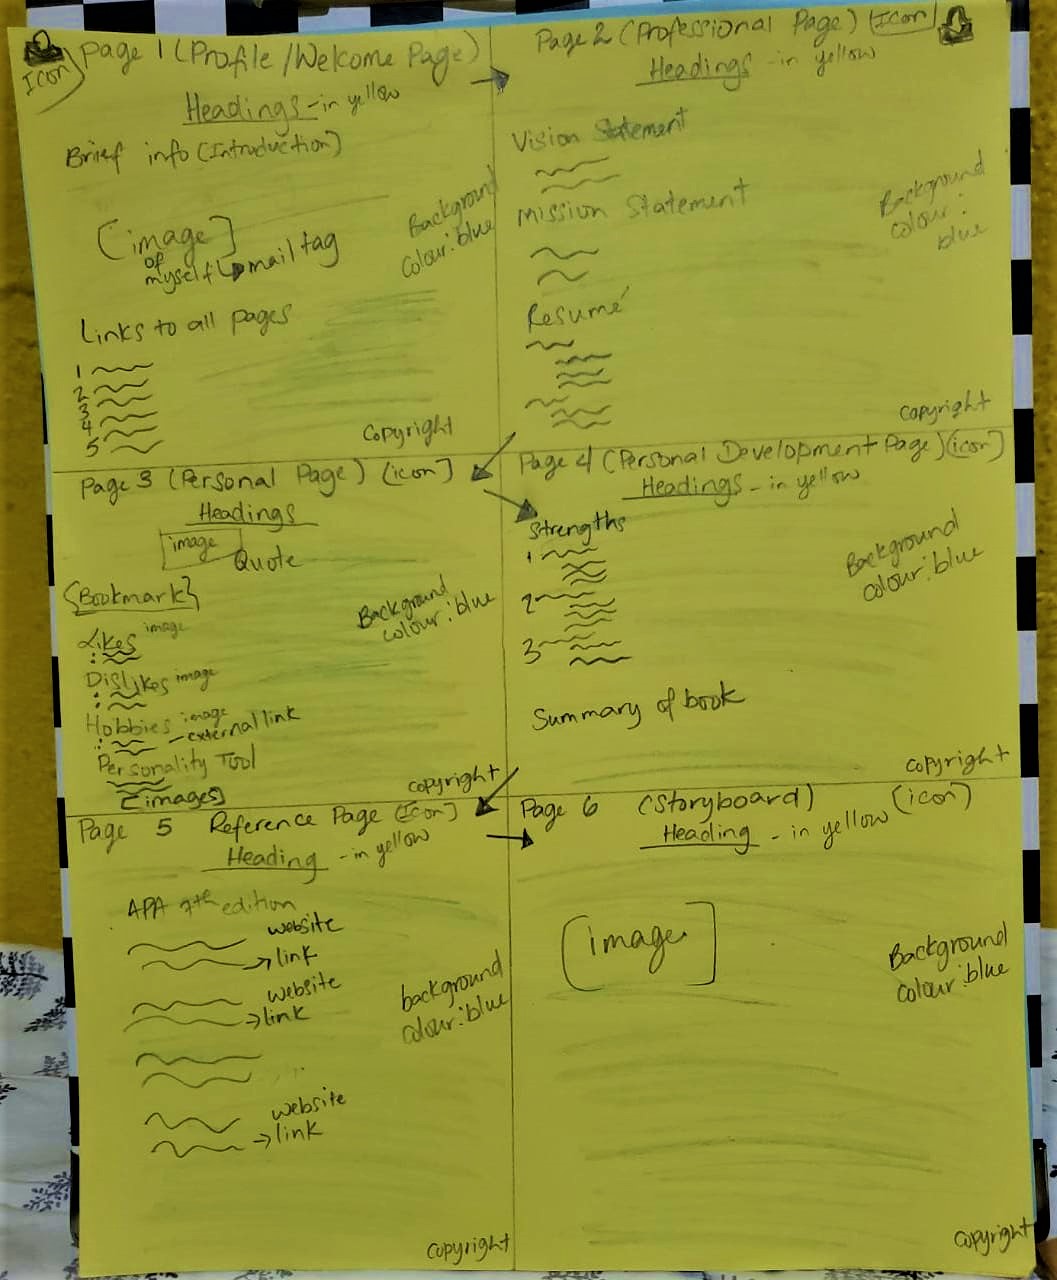 Icon
Page 1 (Profile/Welcome Page)
Headings - in yellow
Brief info (Introduction)
[image]
of
myself
mail tag
Background
colour: blue
Links to all pages
1
2
3
4
5
Copyright
Page 2 (Professional Page) (Icon)
Headings - in yellow
Vision Statement
Mission Statement
Background
colour:
blue
Resumé
Copyright
Page 3 (Personal Page) (icon)
Headings
image
Quote
{Bookmark}
Background
colour: blue
Likes image
Dislikes image
Hobbies image
- external link
Personality Tool
[images]
copyright
Page 4 (Personal Development Page) (icon)
Headings - in yellow
Strengths
1
2
3
Background
colour: blue
Summary of book
copyright
Page 5 Reference Page (Icon)
Heading - in yellow
APA 7th edition
website
link
website
link
background
colour: blue
website
link
copyright
Page 6 (Storyboard) (icon)
Heading - in yellow
[image]
Background
colour: blue
copyright